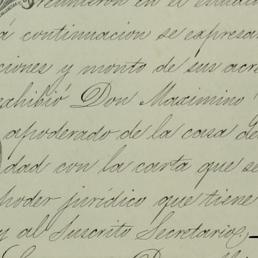 reunieron en el
a continuacion se expresa
ciones y monto de sus acre
exhibió Don Maximino
apoderado de la casa de
dad con la carta que se
poder jurídico que tiene
y al Suscrito Secretario;